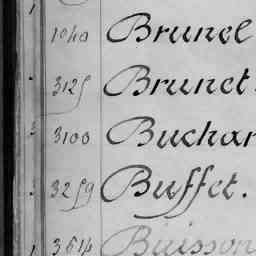 1040 Brunel
3125 Brunet.
3100 Buchar
3259 Buffet.
3614 Buisson